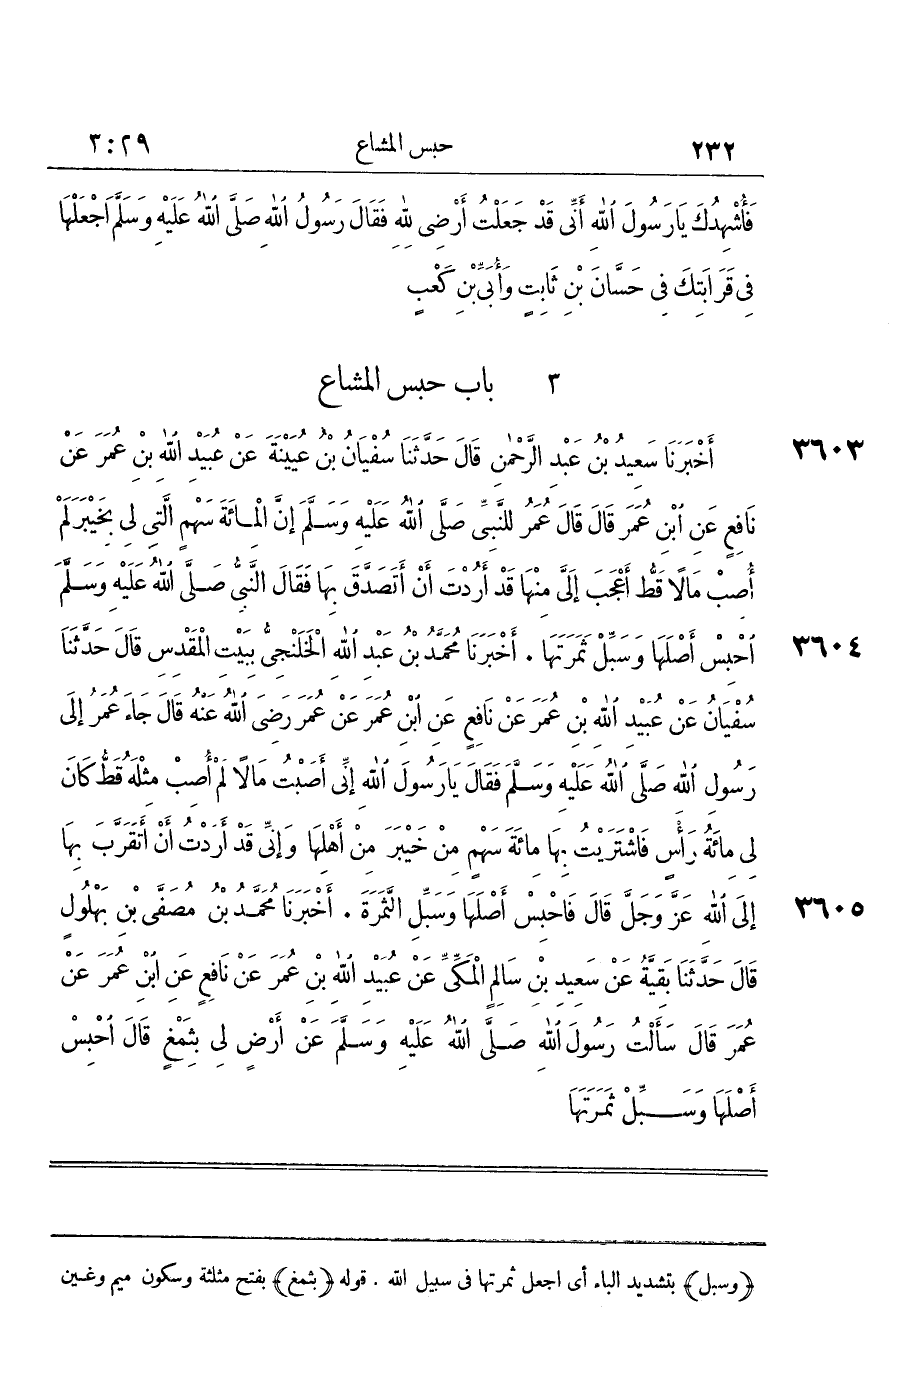 ٢٣٢ حبس المشاع ٢٩:٣
فَأُشْهِدُكَ يَارَسُولَ ٱللهِ أَنِّى قَدْ جَعَلْتُ أَرْضِى لِلهِ فَقَالَ رَسُولُ ٱللهِ صَلَّى ٱللهُ عَلَيْهِ وَسَلَّمَ ٱجْعَلْهَا
فِى قَرَابَتِكَ فِى حَسَّانَ بْنِ ثَابِتٍ وَأُبَىِّ بْنِ كَعْبٍ
٣ باب حبس المشاع
٣٦٠٣ أَخْبَرَنَا سَعِيدُ بْنُ عَبْدِ الرَّحْمٰنِ قَالَ حَدَّثَنَا سُفْيَانُ بْنُ عُيَيْنَةَ عَنْ عُبَيْدِ ٱللهِ بْنِ عُمَرَ عَنْ
نَافِعٍ عَنِ ٱبْنِ عُمَرَ قَالَ قَالَ عُمَرُ لِلنَّبِىِّ صَلَّى ٱللهُ عَلَيْهِ وَسَلَّمَ إِنَّ الْمِائَةَ سَهْمٍ الَّتِى لِى بِخَيْبَرَ لَمْ
أُصِبْ مَالًا قَطُّ أَعْجَبَ إِلَىَّ مِنْهَا قَدْ أَرَدْتُ أَنْ أَتَصَدَّقَ بِهَا فَقَالَ النَّبِىُّ صَلَّى ٱللهُ عَلَيْهِ وَسَلَّمَ
٣٦٠٤ ٱحْبِسْ أَصْلَهَا وَسَبِّلْ ثَمَرَتَهَا . أَخْبَرَنَا مُحَمَّدُ بْنُ عَبْدِ ٱللهِ الْخَلَنْجِىُّ بِبَيْتِ الْمَقْدِسِ قَالَ حَدَّثَنَا
سُفْيَانُ عَنْ عُبَيْدِ ٱللهِ بْنِ عُمَرَ عَنْ نَافِعٍ عَنِ ٱبْنِ عُمَرَ عَنْ عُمَرَ رَضِىَ ٱللهُ عَنْهُ قَالَ جَاءَ عُمَرُ إِلَى
رَسُولِ ٱللهِ صَلَّى ٱللهُ عَلَيْهِ وَسَلَّمَ فَقَالَ يَارَسُولَ ٱللهِ إِنِّى أَصَبْتُ مَالًا لَمْ أُصِبْ مِثْلَهُ قَطُّ كَانَ
لِى مِائَةُ رَأْسٍ فَاشْتَرَيْتُ بِهَا مِائَةَ سَهْمٍ مِنْ خَيْبَرَ مِنْ أَهْلِهَا وَإِنِّى قَدْ أَرَدْتُ أَنْ أَتَقَرَّبَ بِهَا
٣٦٠٥ إِلَى ٱللهِ عَزَّ وَجَلَّ قَالَ فَاحْبِسْ أَصْلَهَا وَسَبِّلِ الثَّمَرَةَ . أَخْبَرَنَا مُحَمَّدُ بْنُ مُصَفَّى بْنِ بَهْلُولٍ
قَالَ حَدَّثَنَا بَقِيَّةُ عَنْ سَعِيدِ بْنِ سَالِمٍ الْمَكِّىِّ عَنْ عُبَيْدِ ٱللهِ بْنِ عُمَرَ عَنْ نَافِعٍ عَنِ ٱبْنِ عُمَرَ عَنْ
عُمَرَ قَالَ سَأَلْتُ رَسُولَ ٱللهِ صَلَّى ٱللهُ عَلَيْهِ وَسَلَّمَ عَنْ أَرْضٍ لِى بِثَمْغٍ قَالَ ٱحْبِسْ
أَصْلَهَا وَسَبِّلْ ثَمَرَتَهَا
﴿وسبل﴾ بتشديد الباء أى اجعل ثمرتها فى سبيل الله . قوله ﴿بثمغ﴾ بفتح مثلثة وسكون ميم وغين